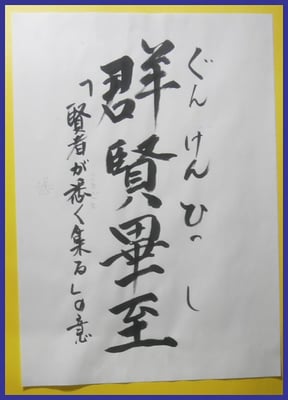 ぐんけんひつし
群賢畢至
「賢者が悉く集る」の意